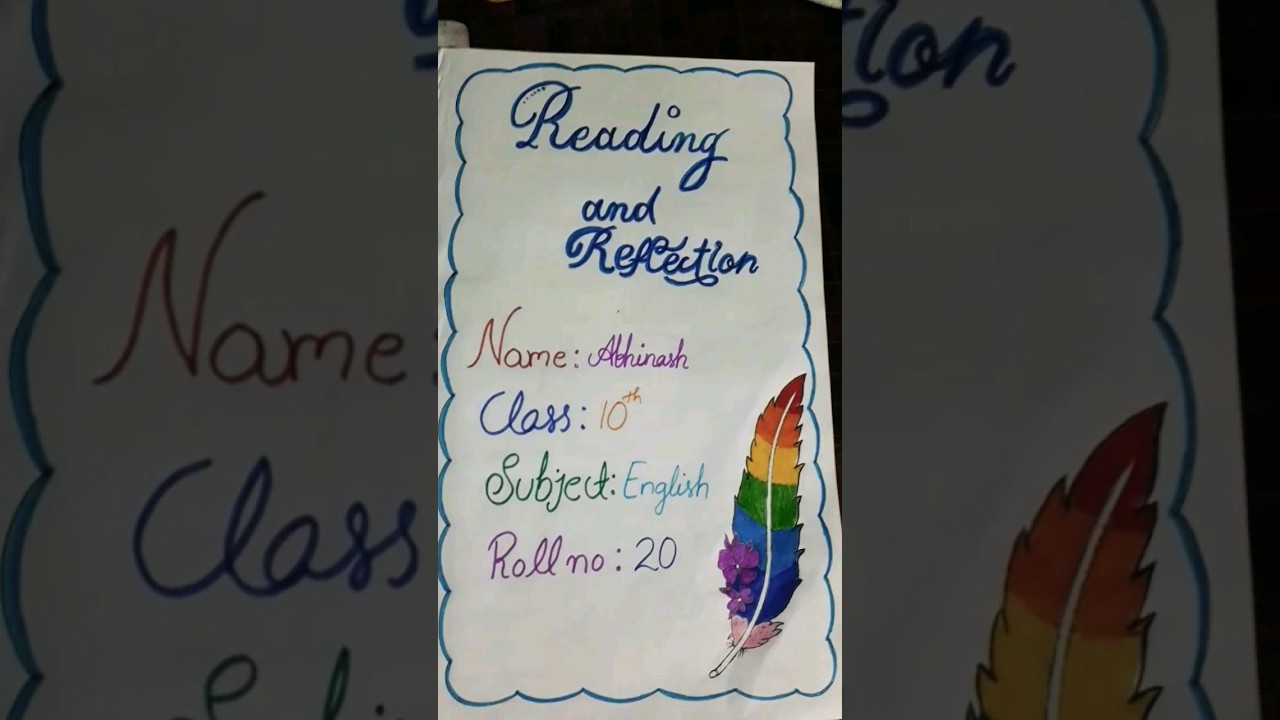 Reading
and
Reflection
Name: Abhinash
Class: 10th
Subject: English
Roll no: 20